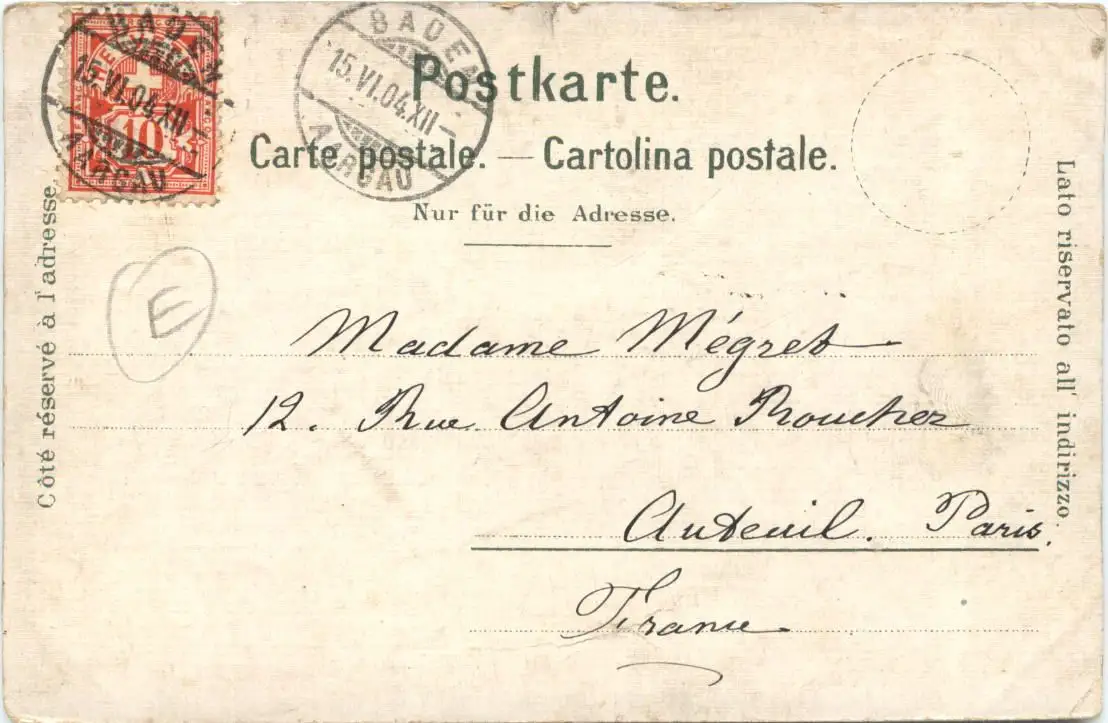 HELVETIA
10
BADEN
15.VI.04.XII
AARGAU
BADEN
15.VI.04.XII–
AARGAU
Postkarte.
Carte postale. — Cartolina postale.
Nur für die Adresse.
Côté réservé à l'adresse.
Lato riservato all' indirizzo.
E
Madame Mégret
12. Rue Antoine Roucher
Auteuil. Paris.
France